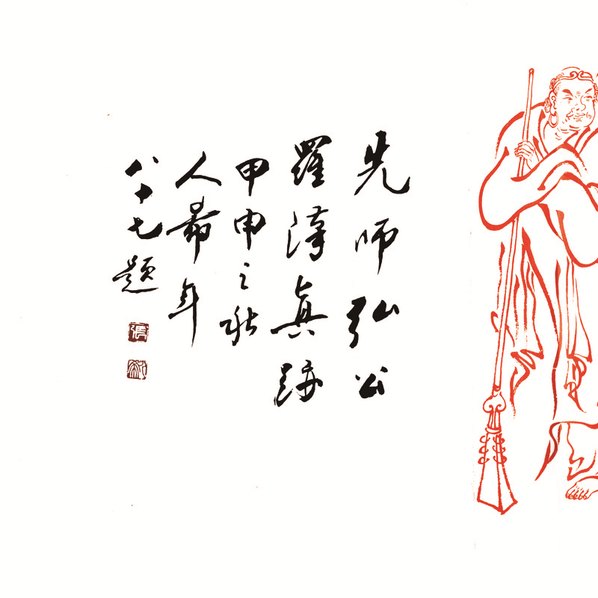 先師弘公
羅漢真跡
甲申之秋
人希年
八十七題
張